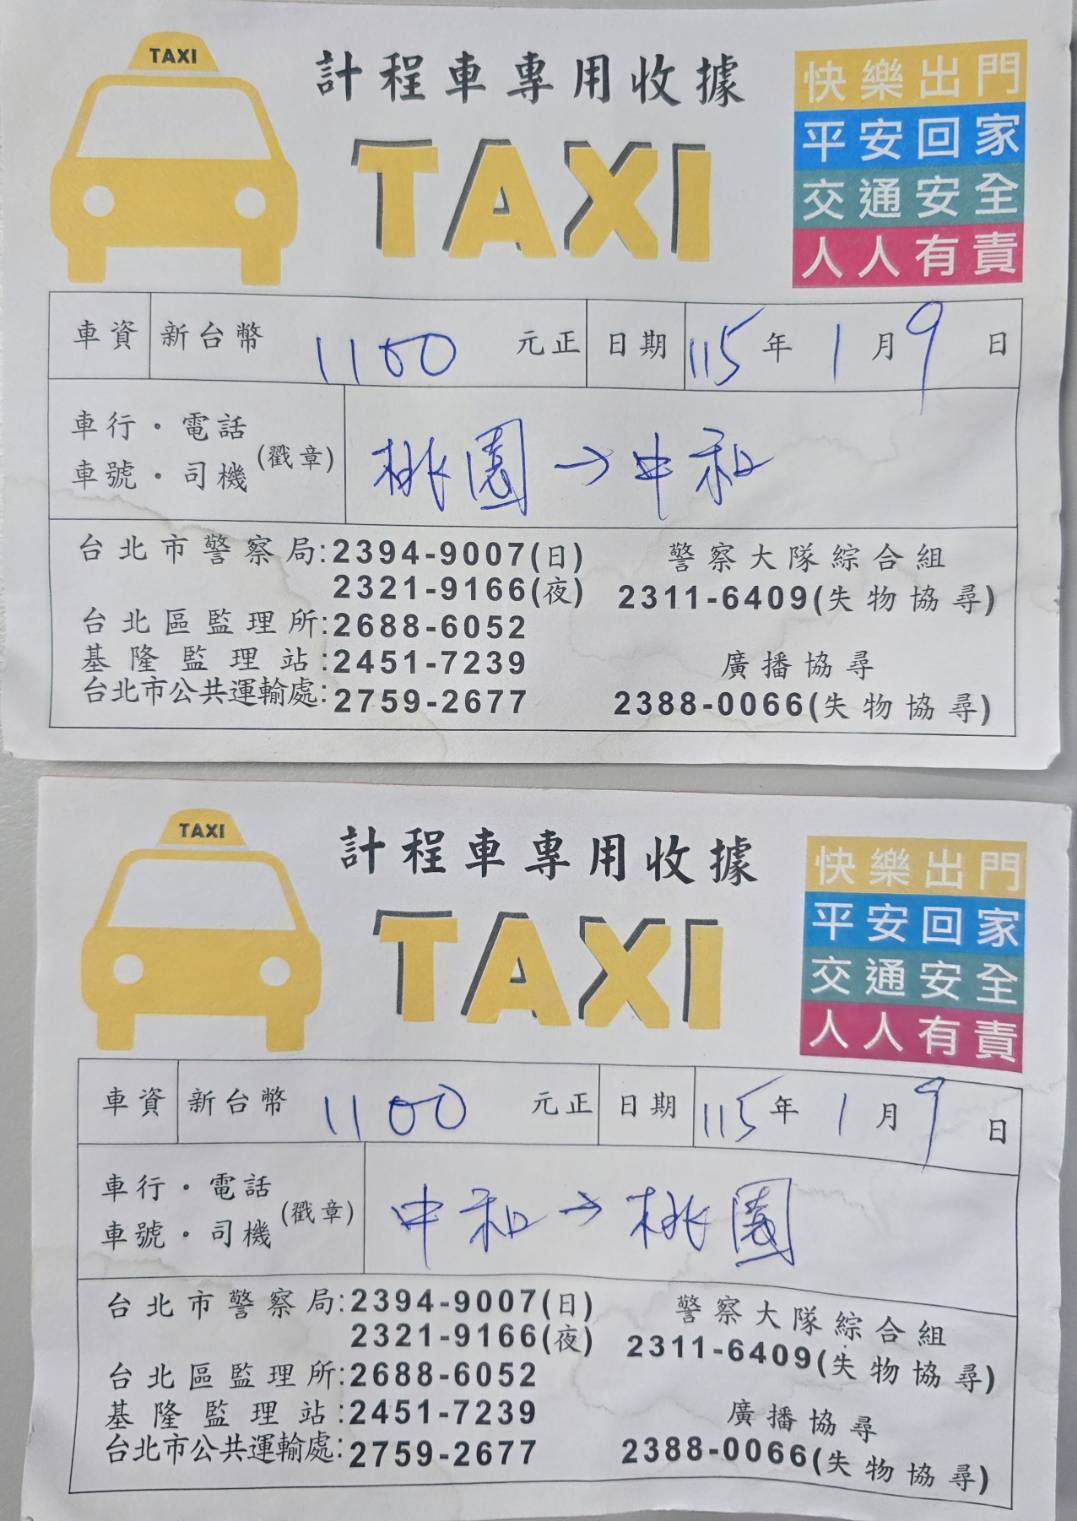 TAXI
計程車專用收據
TAXI
快樂出門
平安回家
交通安全
人人有責
車資 新台幣 1100 元正 日期 115年1月9日
車行·電話
車號·司機 (戳章) 桃園→中和
台北市警察局:2394-9007(日) 警察大隊綜合組
2321-9166(夜) 2311-6409(失物協尋)
台北區監理所:2688-6052
基隆監理站:2451-7239 廣播協尋
台北市公共運輸處:2759-2677 2388-0066(失物協尋)
TAXI
計程車專用收據
TAXI
快樂出門
平安回家
交通安全
人人有責
車資 新台幣 1100 元正 日期 115年1月9日
車行·電話
車號·司機 (戳章) 中和→桃園
台北市警察局:2394-9007(日) 警察大隊綜合組
2321-9166(夜) 2311-6409(失物協尋)
台北區監理所:2688-6052
基隆監理站:2451-7239 廣播協尋
台北市公共運輸處:2759-2677 2388-0066(失物協尋)